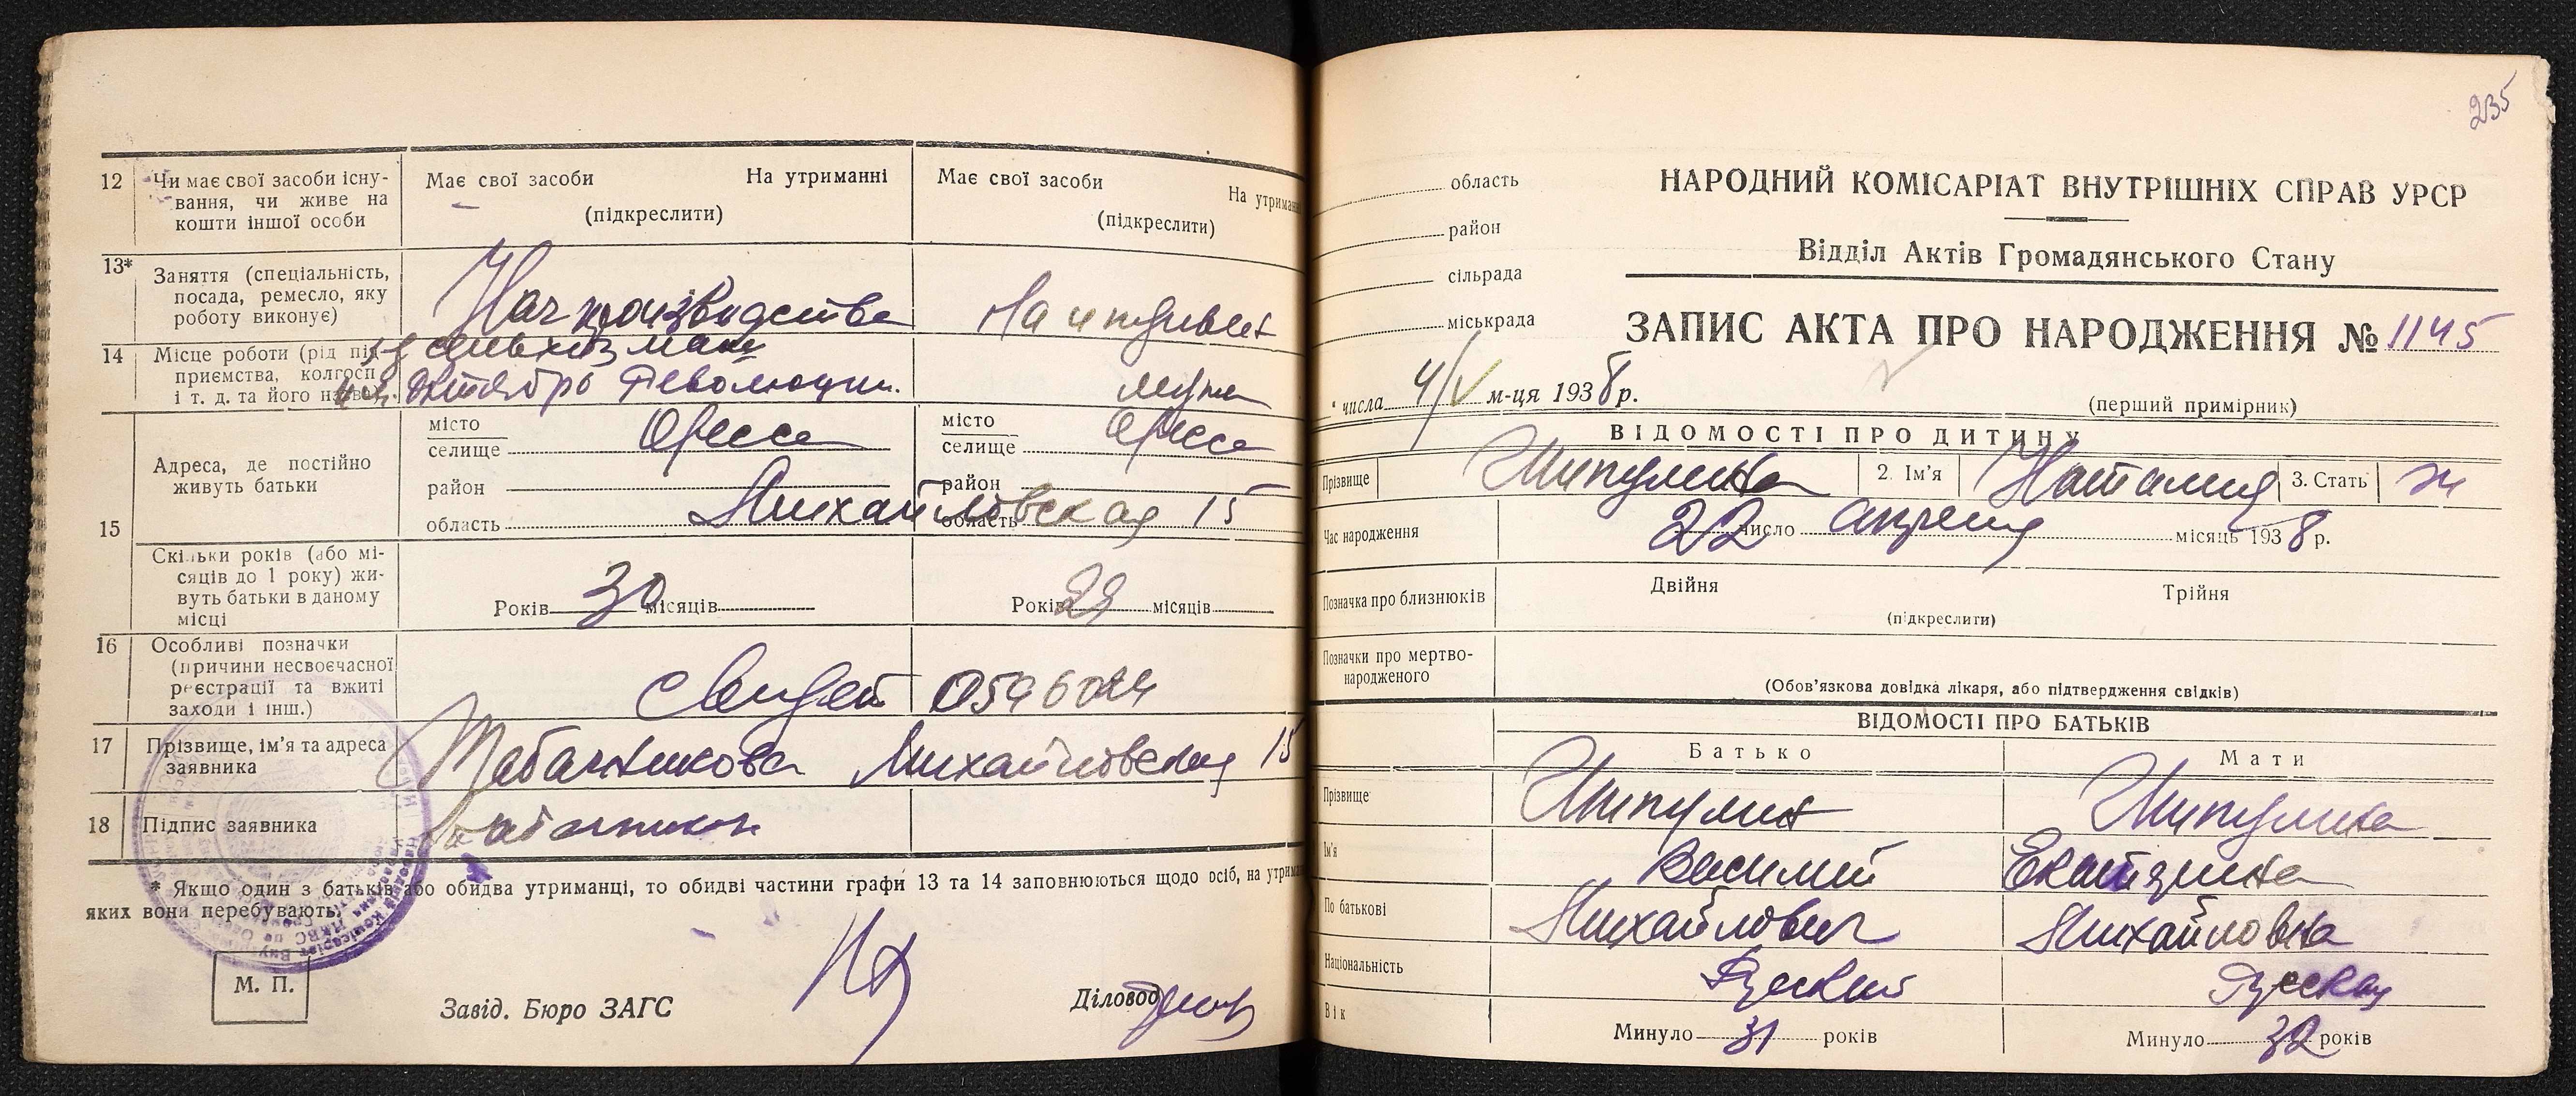 12 Чи має свої засоби існу-
вання, чи живе на
кошти іншої особи
Має свої засоби На утриманні
(підкреслити)
Має свої засоби На утриман
(підкреслити)
13* Заняття (спеціальність,
посада, ремесло, яку
роботу виконує)
Нач производства
На иждивен
14 Місце роботи (рід під-
приємства, колгосп
і т. д. та його назва)
сельхозмаш
Октябр Революции.
мужа
15 Адреса, де постійно
живуть батьки
місто
селище Одесса
район
область
місто
селище Одесса
район
область
Михайловская 15
Скільки років (або мі-
сяців до 1 року) жи-
вуть батьки в даному
місці
Років 30 місяців
Років 29 місяців
16 Особливі позначки
(причини несвоєчасної
реєстрації та вжиті
заходи і інш.)
17 Прізвище, ім'я та адреса
заявника
Табачникова Михайловская 15
18 Підпис заявника
* Якщо один з батьків або обидва утриманці, то обидві частини графи 13 та 14 заповнюються щодо осіб, на утрима
яких вони перебувають.
М. П.
Завід. Бюро ЗАГС
Діловод
235
область
район
сільрада
міськрада
НАРОДНИЙ КОМІСАРІАТ ВНУТРІШНІХ СПРАВ УРСР
Відділ Актів Громадянського Стану
ЗАПИС АКТА ПРО НАРОДЖЕННЯ № 1145
числа 4/V м-ця 1938 р.
(перший примірник)
ВІДОМОСТІ ПРО ДИТИНУ
Прізвище Шипулина 2. Ім'я Наталия 3. Стать ж
Час народження 22 число апреля місяць 1938 р.
Позначка про близнюків Двійня Трійня
(підкреслити)
Позначки про мертво-
народженого
(Обов'язкова довідка лікаря, або підтвердження свідків)
ВІДОМОСТІ ПРО БАТЬКІВ
Батько Мати
Прізвище Шипулин Шипулина
Ім'я Василий Екатерина
По батькові Михайлович Михайловна
Національність Русский Русская
Вік Минуло 31 років Минуло 32 років